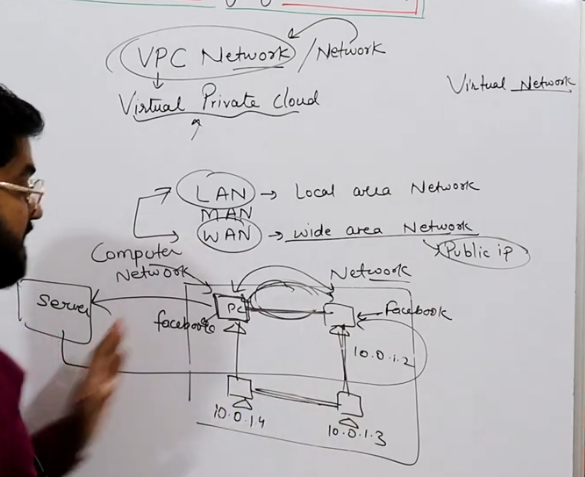 VPC Network / Network
Virtual Private Cloud
Virtual Network
LAN → Local area Network
MAN
WAN → wide area Network
Public ip
Computer
Network
Network
Server
PC
facebook
facebook
10.0.1.2
10.0.1.4
10.0.1.3